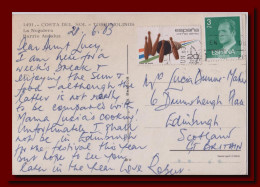 1031 - COSTA DEL SOL - TORREMOLINOS
La Nogalera
21.6.83
Dear Aunt Lucy,
I am here for a
week's break,
enjoying the sun &
food - although the
latter is not really
to be compared with
Mama Lucia's cooking!
Unfortunately I shall
not be in Edinburgh
for the festival this year
but hope to see you
later in the year Love
españa
3
ESPAÑA
Edinburgh
Scotland